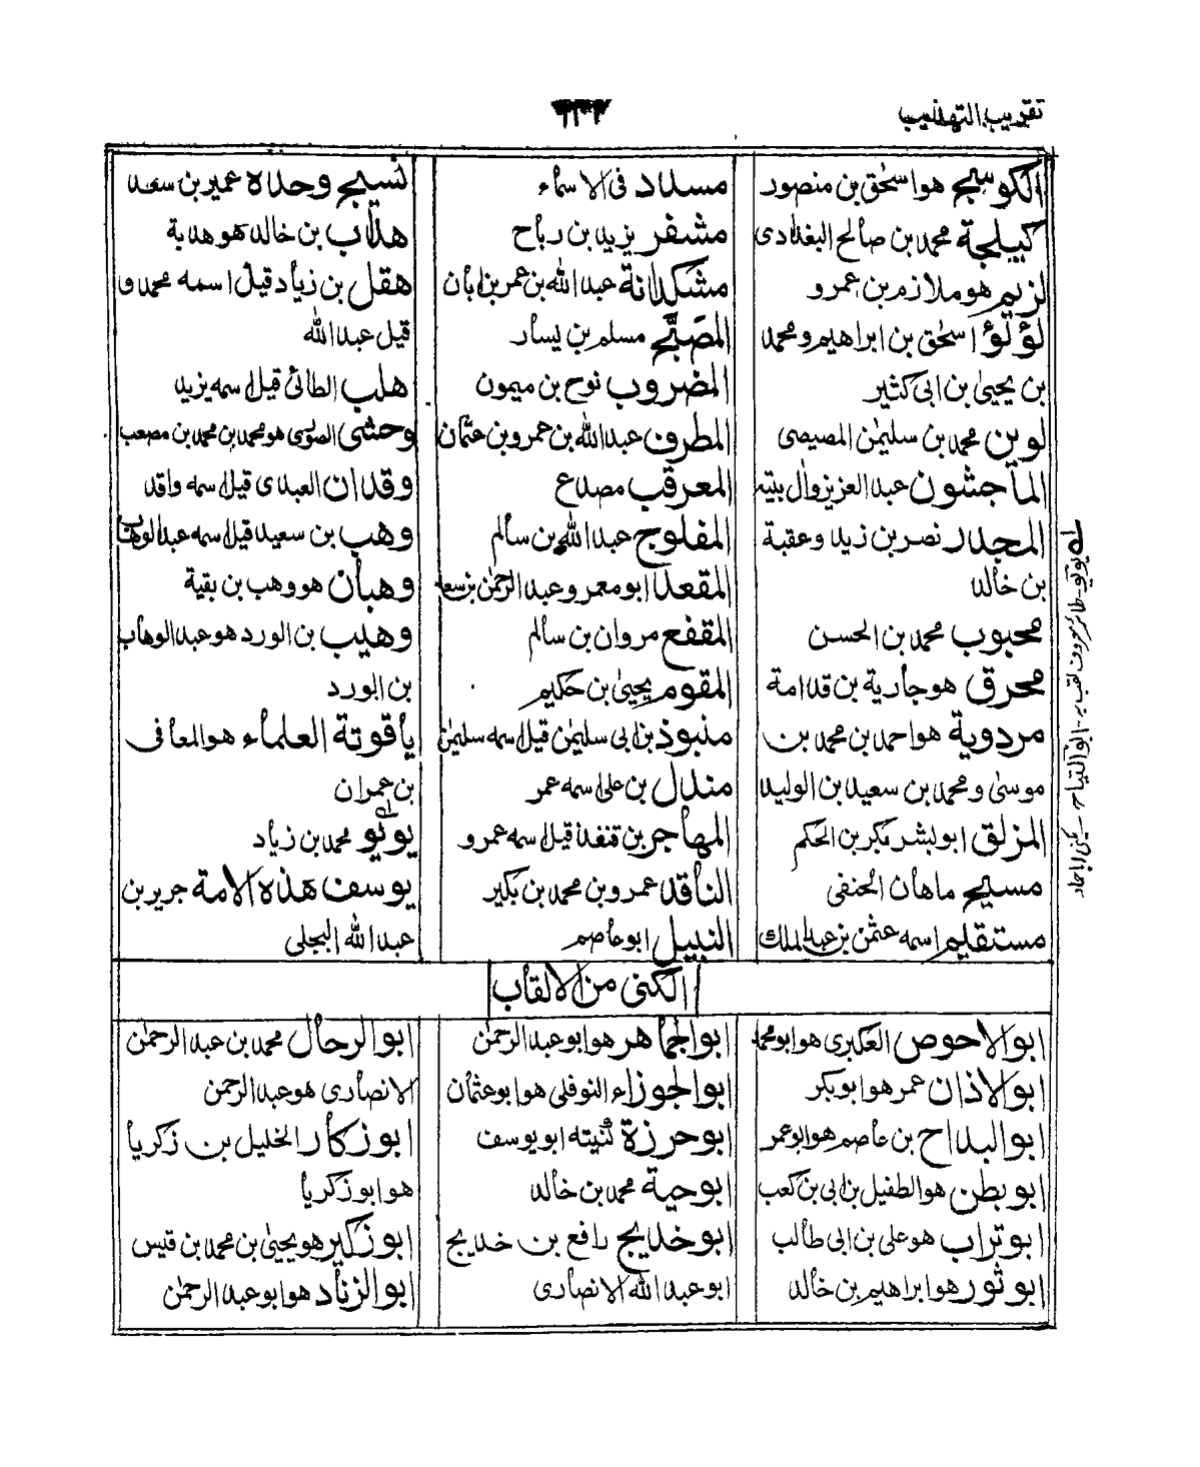 تقريب التهذيب
٦٣٣
الكوسج هو اسحٰق بن منصور
كيلجة محمد بن صالح البغدادى
لزيم هو ملازم بن عمرو
لؤلؤ اسحٰق بن ابراهيم و محمد
بن يحيىٰ بن ابى كثير
لوين محمد بن سليمٰن المصيصى
الماجشون عبد العزيز وال بيته
المجدر نصر بن زيد و عقبة
بن خالد
محبوب محمد بن الحسن
محرق هو جارية بن قدامة
مردوية هو احمد بن محمد بن
موسىٰ و محمد بن سعيد بن الوليد
المزلق ابو بشر بكر بن الحكم
مسيح ماهان الحنفى
مستقليم اسمه عثمٰن بن عبد الملك
مسدد فى الاسماء
مشفر يزيد بن رباح
مشكدانة عبد الله بن عمر بن ابان
المصبّح مسلم بن يسار
المضروب نوح بن ميمون
المطرف عبد الله بن عمرو بن عثمان
المعرقب مصدع
المفلوج عبد الله بن سالم
المقعد ابو معمر و عبد الرحمٰن بن سعد
المقفع مروان بن سالم
المقوم يحيىٰ بن حكيم
منبوذ بن ابى سليمٰن قيل اسمه سليمٰن
مندل بن على اسمه عمر
المهاجر بن قنفذ قيل اسمه عمرو
الناقد عمرو بن محمد بن بكير
النبيل ابو عاصم
نسيج وحده عمير بن سعد
هداب بن خالد هو هدبة
هقل بن زياد قيل اسمه محمد و
قيل عبد الله
هلب الطائى قيل اسمه يزيد
وحشى الصورى هو محمد بن محمد بن مصعب
وقدان العبدى قيل اسمه واقد
وهب بن سعيد قيل اسمه عبد الوهاب
وهبان هو وهب بن بقية
وهيب بن الورد هو عبد الوهاب
بن الورد
ياقوتة العلماء هو المعافى
بن عمران
يوئيو محمد بن زياد
يوسف هذه الامة جرير بن
عبد الله البجلى
الكنى من الالقاب
ابو الاحوص العكبرى هو ابو محمد
ابو الاذان عمر هو ابو بكر
ابو البداح بن عاصم هو ابو عمر
ابو بطن هو الطفيل بن ابى بن كعب
ابو تراب هو على بن ابى طالب
ابو ثور هو ابراهيم بن خالد
ابو الجماهر هو ابو عبد الرحمٰن
ابو الجوزاء النوفلى هو ابو عثمان
ابو حرزة كنيته ابو يوسف
ابو حية محمد بن خالد
ابو خديج رافع بن خديج
ابو عبد الله الانصارى
ابو الرحال محمد بن عبد الرحمٰن
الانصارى هو عبد الرحمن
ابو زكار الخليل بن زكريا
هو ابو زكريا
ابو زكير هو يحيىٰ بن محمد بن قيس
ابو الزناد هو ابو عبد الرحمٰن